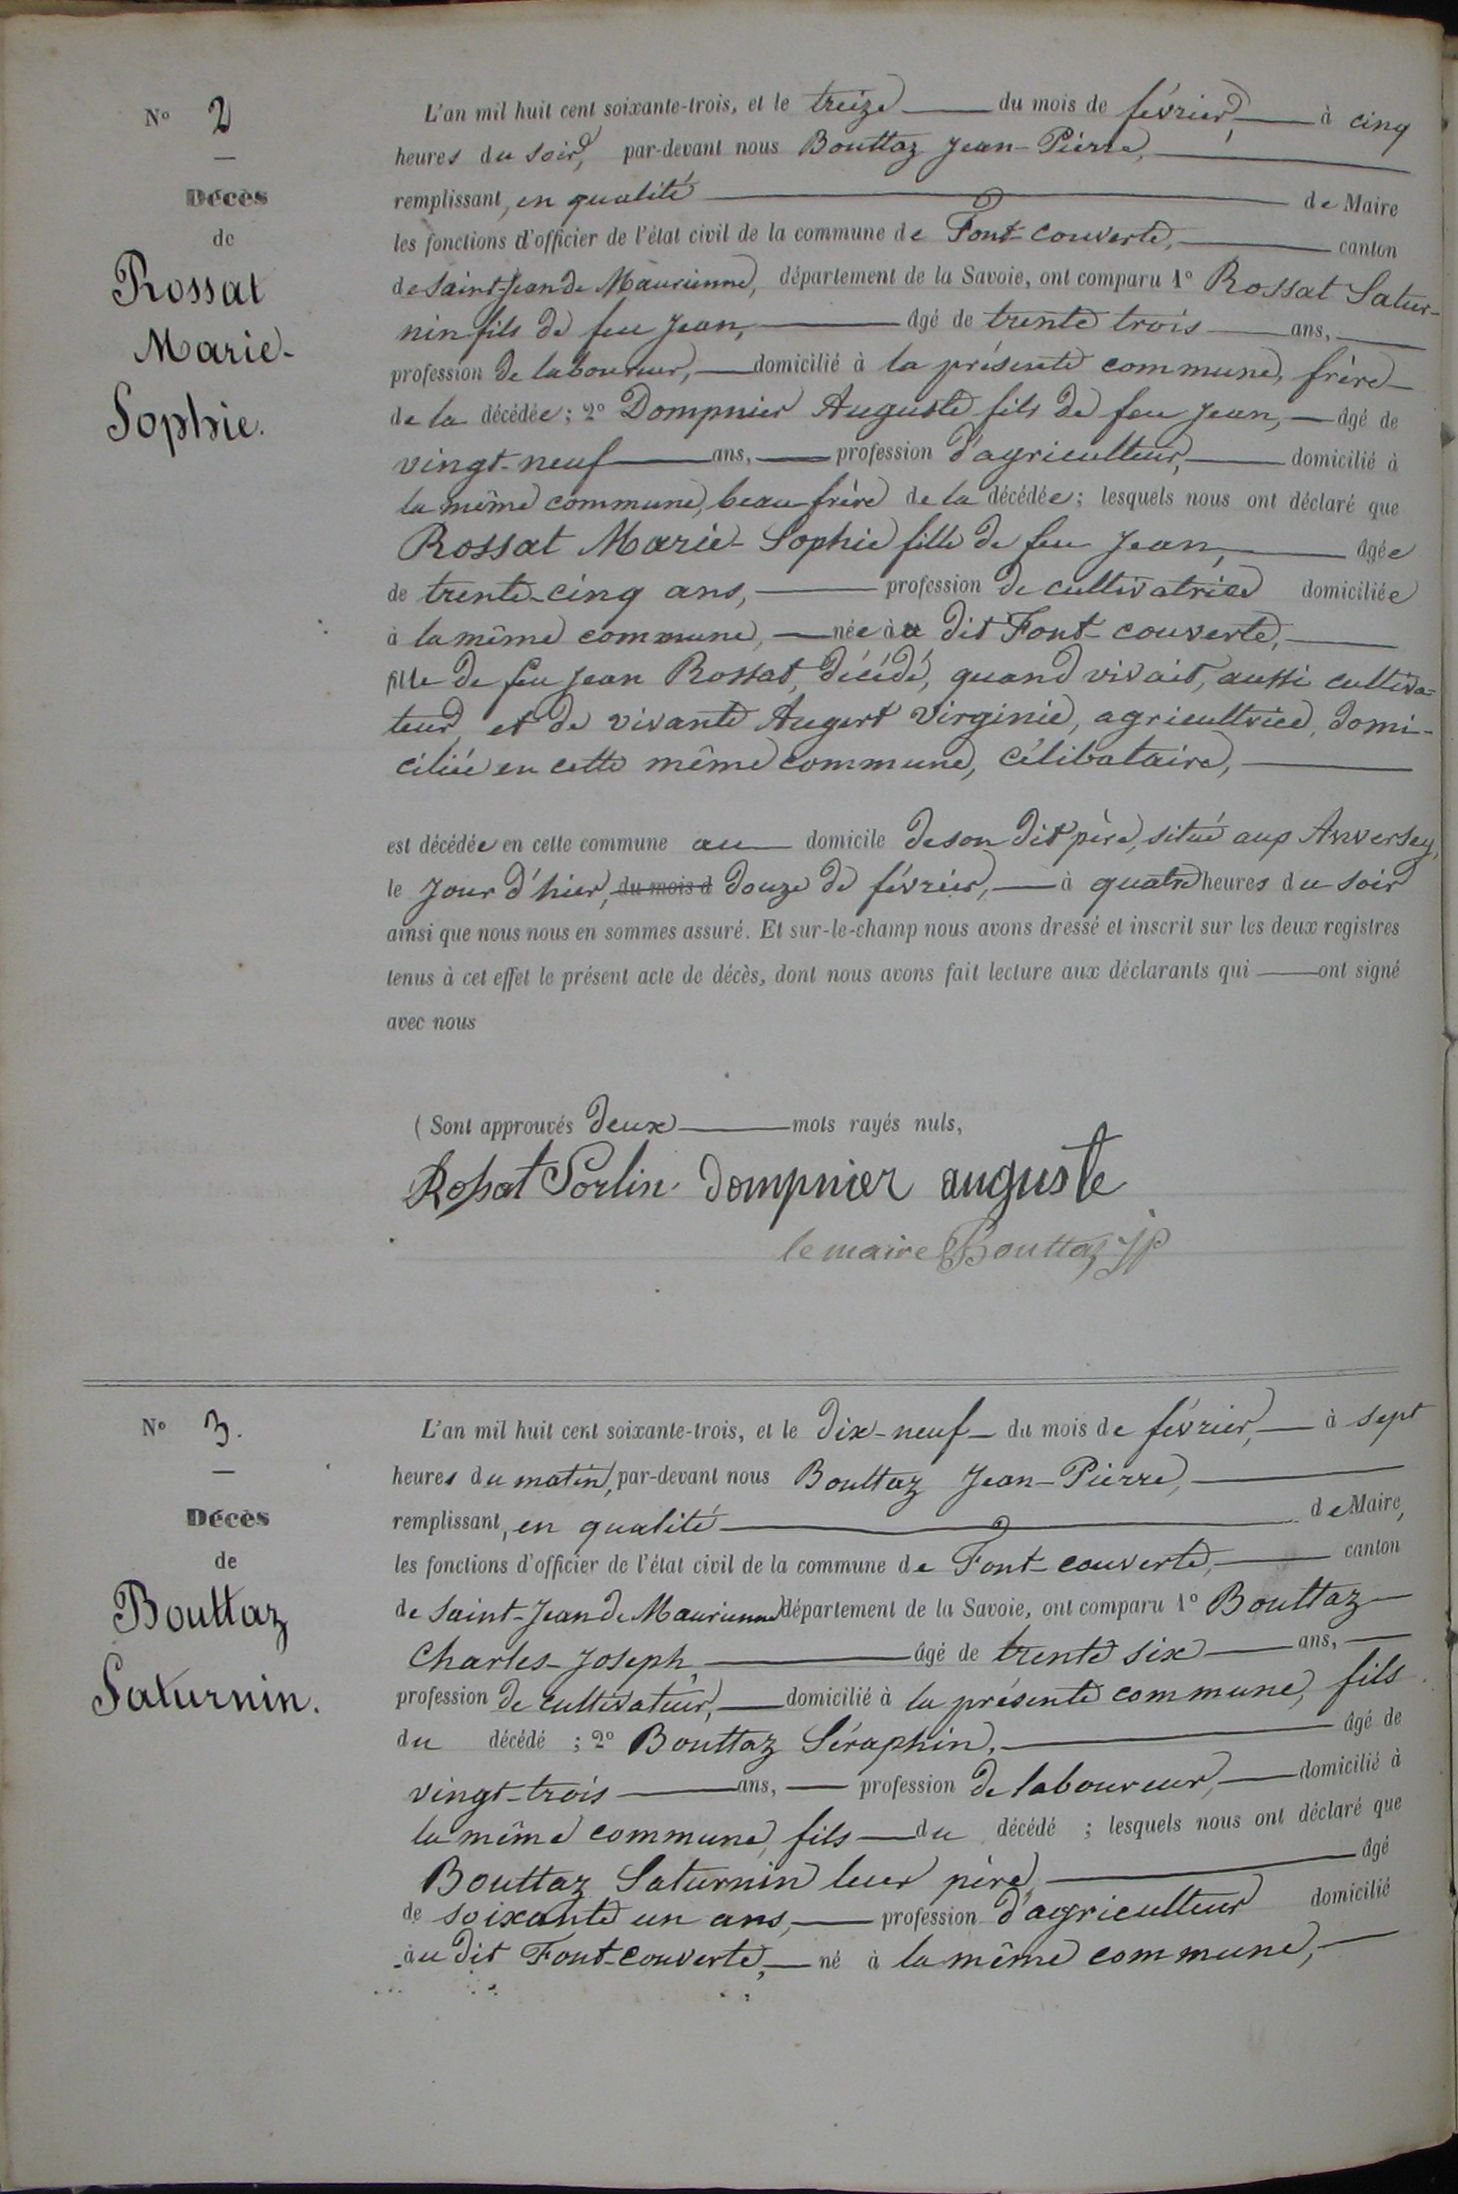 N° 2
Décès
de
Rossat
Marie-
Sophie.
L'an mil huit cent soixante-trois, et le treize du mois de février, à cinq
heures du soir, par-devant nous Bouttaz Jean-Pierre,
remplissant, en qualité de Maire
les fonctions d'officier de l'état civil de la commune de Font-couverte, canton
de Saint-Jean de Maurienne, département de la Savoie, ont comparu 1° Rossat Satur-
nin fils de feu Jean, âgé de trente trois ans,
profession de laboureur, domicilié à la présente commune, frère
de la décédée; 2° Dompnier Auguste fils de feu Jean, âgé de
vingt-neuf ans, profession d'agriculteur, domicilié à
la même commune, beau-frère de la décédée; lesquels nous ont déclaré que
Rossat Marie-Sophie fille de feu Jean, âgée
de trente-cinq ans, profession de cultivatrice domiciliée
à la même commune, née au dit Font-couverte,
fille de feu Jean Rossat, décédé, quand vivait, aussi cultiva-
teur, et de vivante Augert Virginie, agricultrice, domi-
ciliée en cette même commune, célibataire,
est décédée en cette commune au domicile de son dit père, situé aux Anversey,
le jour d'hier, du mois d douze de février, à quatre heures du soir
ainsi que nous nous en sommes assuré. Et sur-le-champ nous avons dressé et inscrit sur les deux registres
tenus à cet effet le présent acte de décès, dont nous avons fait lecture aux déclarants qui ont signé
avec nous
(Sont approuvés deux mots rayés nuls,
Rossat Sorlin dompnier auguste
le maire Bouttaz JP
N° 3.
Décès
de
Bouttaz
Saturnin.
L'an mil huit cent soixante-trois, et le dix-neuf du mois de février, à sept
heures du matin, par-devant nous Bouttaz Jean-Pierre,
remplissant, en qualité de Maire,
les fonctions d'officier de l'état civil de la commune de Font-couverte, canton
de Saint-Jean de Maurienne département de la Savoie, ont comparu 1° Bouttaz
Charles-Joseph, âgé de trente six ans,
profession de cultivateur, domicilié à la présente commune, fils
du décédé ; 2° Bouttaz Séraphin, âgé de
vingt-trois ans, profession de laboureur, domicilié à
la même commune, fils du décédé ; lesquels nous ont déclaré que
Bouttaz Saturnin leur père, âgé
de soixante un ans, profession d'agriculteur domicilié
au dit Font-couverte, né à la même commune,